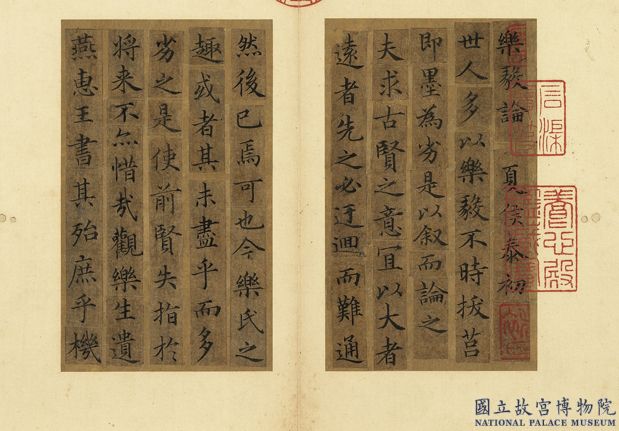 樂毅論 夏侯泰初
世人多以樂毅不時拔莒
即墨為劣是以叙而論之
夫求古賢之意冝以大者
遠者先之必迂迴而難通
然後已焉可也今樂氏之
趣或者其未盡乎而多
劣之是使前賢失指於
將来不亦惜哉觀樂生遺
燕惠王書其殆庶乎機
石渠
養心殿
國立故宮博物院
NATIONAL PALACE MUSEUM